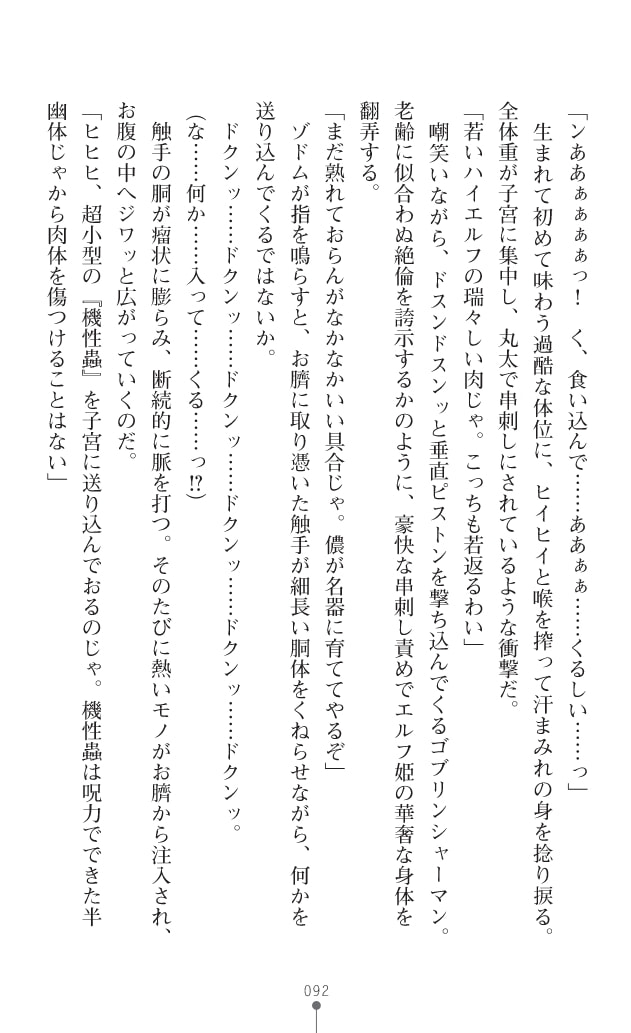 「ンああぁぁぁぁっ！　く、食い込んで……ああぁぁ……くるしい……っ」
生まれて初めて味わう過酷な体位に、ヒイヒイと喉を搾って汗まみれの身を捻り捩る。
全体重が子宮に集中し、丸太で串刺しにされているような衝撃だ。
「若いハイエルフの瑞々しい肉じゃ。こっちも若返るわい」
嘲笑いながら、ドスンドスンッと垂直ピストンを撃ち込んでくるゴブリンシャーマン。
老齢に似合わぬ絶倫を誇示するかのように、豪快な串刺し責めでエルフ姫の華奢な身体を
翻弄する。
「まだ熟れておらんがなかなかいい具合じゃ。儂が名器に育ててやるぞ」
ゾドムが指を鳴らすと、お臍に取り憑いた触手が細長い胴体をくねらせながら、何かを
送り込んでくるではないか。
ドクンッ……ドクンッ……ドクンッ……ドクンッ……ドクンッ。
（な……何か……入って……くる……っ!?）
触手の胴が瘤状に膨らみ、断続的に脈を打つ。そのたびに熱いモノがお臍から注入され、
お腹の中へジワッと広がっていくのだ。
「ヒヒヒ、超小型の『機性蟲』を子宮に送り込んでおるのじゃ。機性蟲は呪力でできた半
幽体じゃから肉体を傷つけることはない」
092